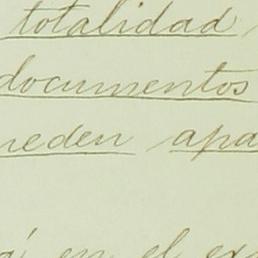 totalidad,
documentos
ueden apa
á en el ex